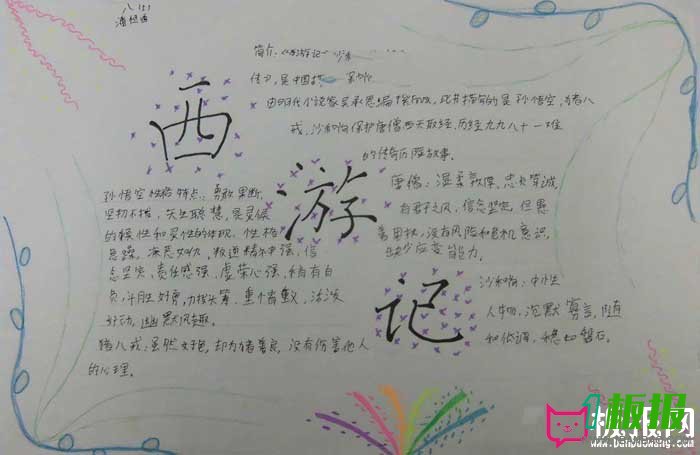 八(5)
简介:《西游记》
西游记
由明代小说家吴承恩编撰而成。此书描写的是孙悟空,猪八
戒,沙和尚保护唐僧西天取经,历经九九八十一难
的传奇历险故事。
孙悟空性格特点:勇敢果断,
坚韧不拔,天生聪慧,
的猴性和 性的体现,性格
急躁, 叛逆精神强,信
念坚实,责任感强,虚荣心强,稍有自
负, 重情重义,活泼
好动,幽默风趣。
猪八戒:虽然好色,却为猪善良,没有伤害他人
的心理。
唐僧:温柔敦厚,忠诚
有君子之风,信念坚定,但愚
没有风险和危机意识,
缺少应变能力。
沙和尚:中性
人物,沉默寡言,随
和低调,稳如磐石。
板报
板报网
www.banbaowang.com